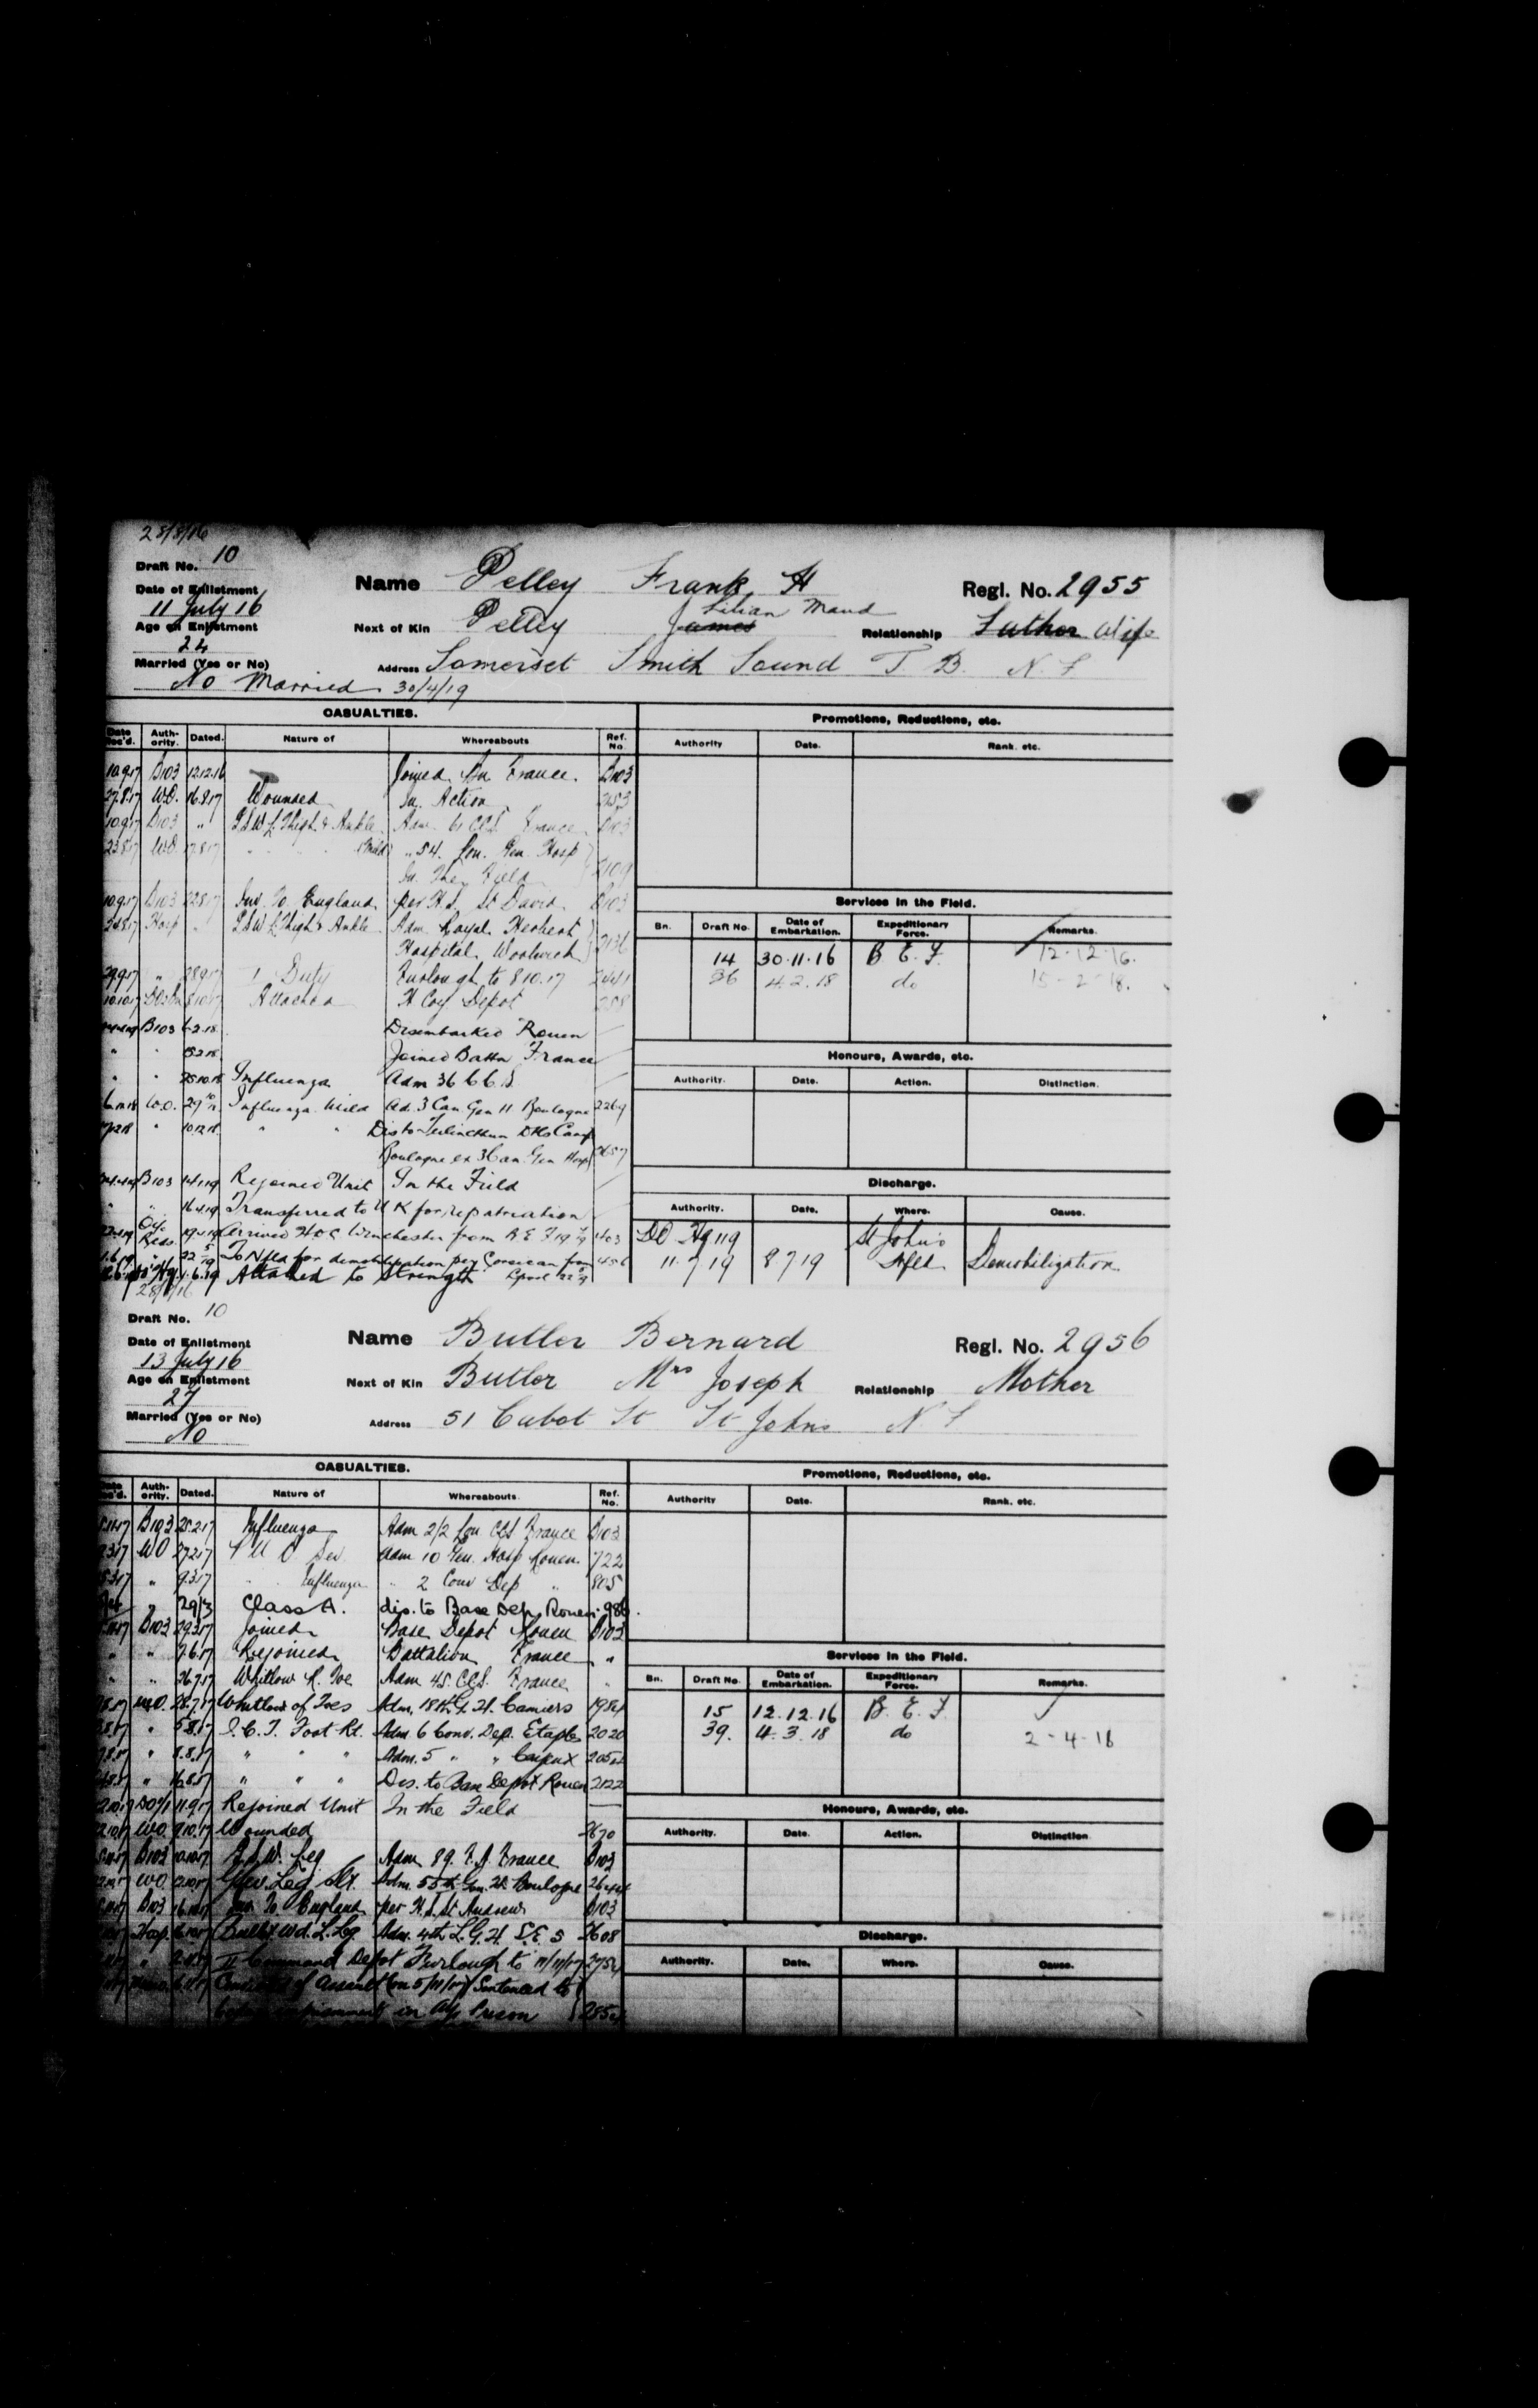 28/8/16
Draft No. 10
Date of Enlistment
11 July 16
Age on Enlistment
24
Married (Yes or No)
No Married 30/4/19
Name Pelley Frank H
Regl. No. 2955
Lilian Maud
Next of Kin Pelley James
Relationship Father Wife
Address Somerset Smith Sound T. B. N. F
CASUALTIES.
Date Rec'd. Auth-ority. Dated. Nature of Whereabouts Ref. No.
10.9.17 B103 12.12.16 Joined Bn France. B103
27.8.17 W.O. 16.8.17 Wounded In Action
10.9.17 B103 " G.S.W. L. Thigh & Ankle Adm. 61 CCS France B103
23.8.17 W.O. (Mild) " 54. Lon. Gen. Hosp
In The Field 2109
10.9.17 B103 22.8.17 Inv. To England per H.S. St David B103
24.8.17 Hosp " G.S.W L. Thigh & Ankle Adm. Royal Herbert
Hospital Woolwich 2136
29.9.17 " 28.9.17 I Duty Furlough to 8.10.17 2441
10.10.17 8.10.17 Attached H Coy Depot
B103 6.2.18 Disembarked Rouen
" " 15.2.18 Joined Battn France
" " 25.10.18 Influenza Adm 36 C.C.S.
W.O. Influenza Mild Ad. 3 Can Gen H Boulogne 2269
" 10.12.18 " " Dis to Terlincthun Camp
Boulogne ex 3 Can. Gen Hosp
B103 14.1.19 Rejoined Unit In the Field
" " 16.4.19 Transferred to U K for repatriation
Arrived Winchester from B E F
To Nfld for demobilization per Corsican from
1.6.19 Attached to Strength
Promotions, Reductions, etc.
Authority Date. Rank. etc.
Services in the Field.
Bn. Draft No. Date of Embarkation. Expeditionary Force. Remarks.
14 30.11.16 B. E. F. 12-12-16.
36 4.2.18 do 15-2-18.
Honours, Awards, etc.
Authority. Date. Action. Distinction.
Discharge.
Authority. Date. Where. Cause.
St John's
11.7.19 8 7 19 Nfld Demobilization
28/8/16
Draft No. 10
Date of Enlistment
13 July 16
Age on Enlistment
27
Married (Yes or No)
No
Name Butler Bernard
Regl. No. 2956
Next of Kin Butler Mrs Joseph
Relationship Mother
Address 51 Cabot St St Johns N. F
CASUALTIES.
Date Rec'd. Auth-ority. Dated. Nature of Whereabouts Ref. No.
B103 25.2.17 Influenza Adm 2/2 Lon CCS France B103
WO 27.2.17 P U O Sev Adm 10 Gen. Hosp Rouen. 722
" 9.3.17 " Influenza " 2 Conv Dep " 805
" 29/3 Class A. dis. to Base Dep. Rouen 986
B103 29.3.17 Joined Base Depot Rouen B103
" " 7.6.17 Rejoined Battalion France "
" " 26.7.17 Whitlow R. Toe Adm 45. CCS. France "
W.O. 28.7.17 Whitlow of Toes Adm. 18th G. H. Camiers
" 5.8.17 I. C. T. Foot Rt. Adm 6 Conv. Dep. Etaples 2020
" 8.8.17 " " " Adm. 5 " " Cayeux
" 16.8.17 " " " Dis. to Base Depot Rouen 2122
11.9.17 Rejoined Unit In the Field
WO. 9.10.17 Wounded 2670
B103 G.S.W. Leg Adm 89. F.A. France B103
WO Leg Adm. Gen. H. Boulogne
B103 Inv. To England per H.S. St Andrew B103
Hosp. Bullet wd. L. Leg Adm. 4th L. G. H. S.E. 5 2608
" Command Depot Furlough to 11/11/17
Convicted of Assault (on 5/11/17) Sentenced to
imprisonment in Prison
Promotions, Reductions, etc.
Authority Date. Rank. etc.
Services in the Field.
Bn. Draft No. Date of Embarkation. Expeditionary Force. Remarks.
15 12.12.16 B. E. F.
39. 4.3.18 do 2-4-18
Honours, Awards, etc.
Authority. Date. Action. Distinction
Discharge.
Authority. Date. Where. Cause.